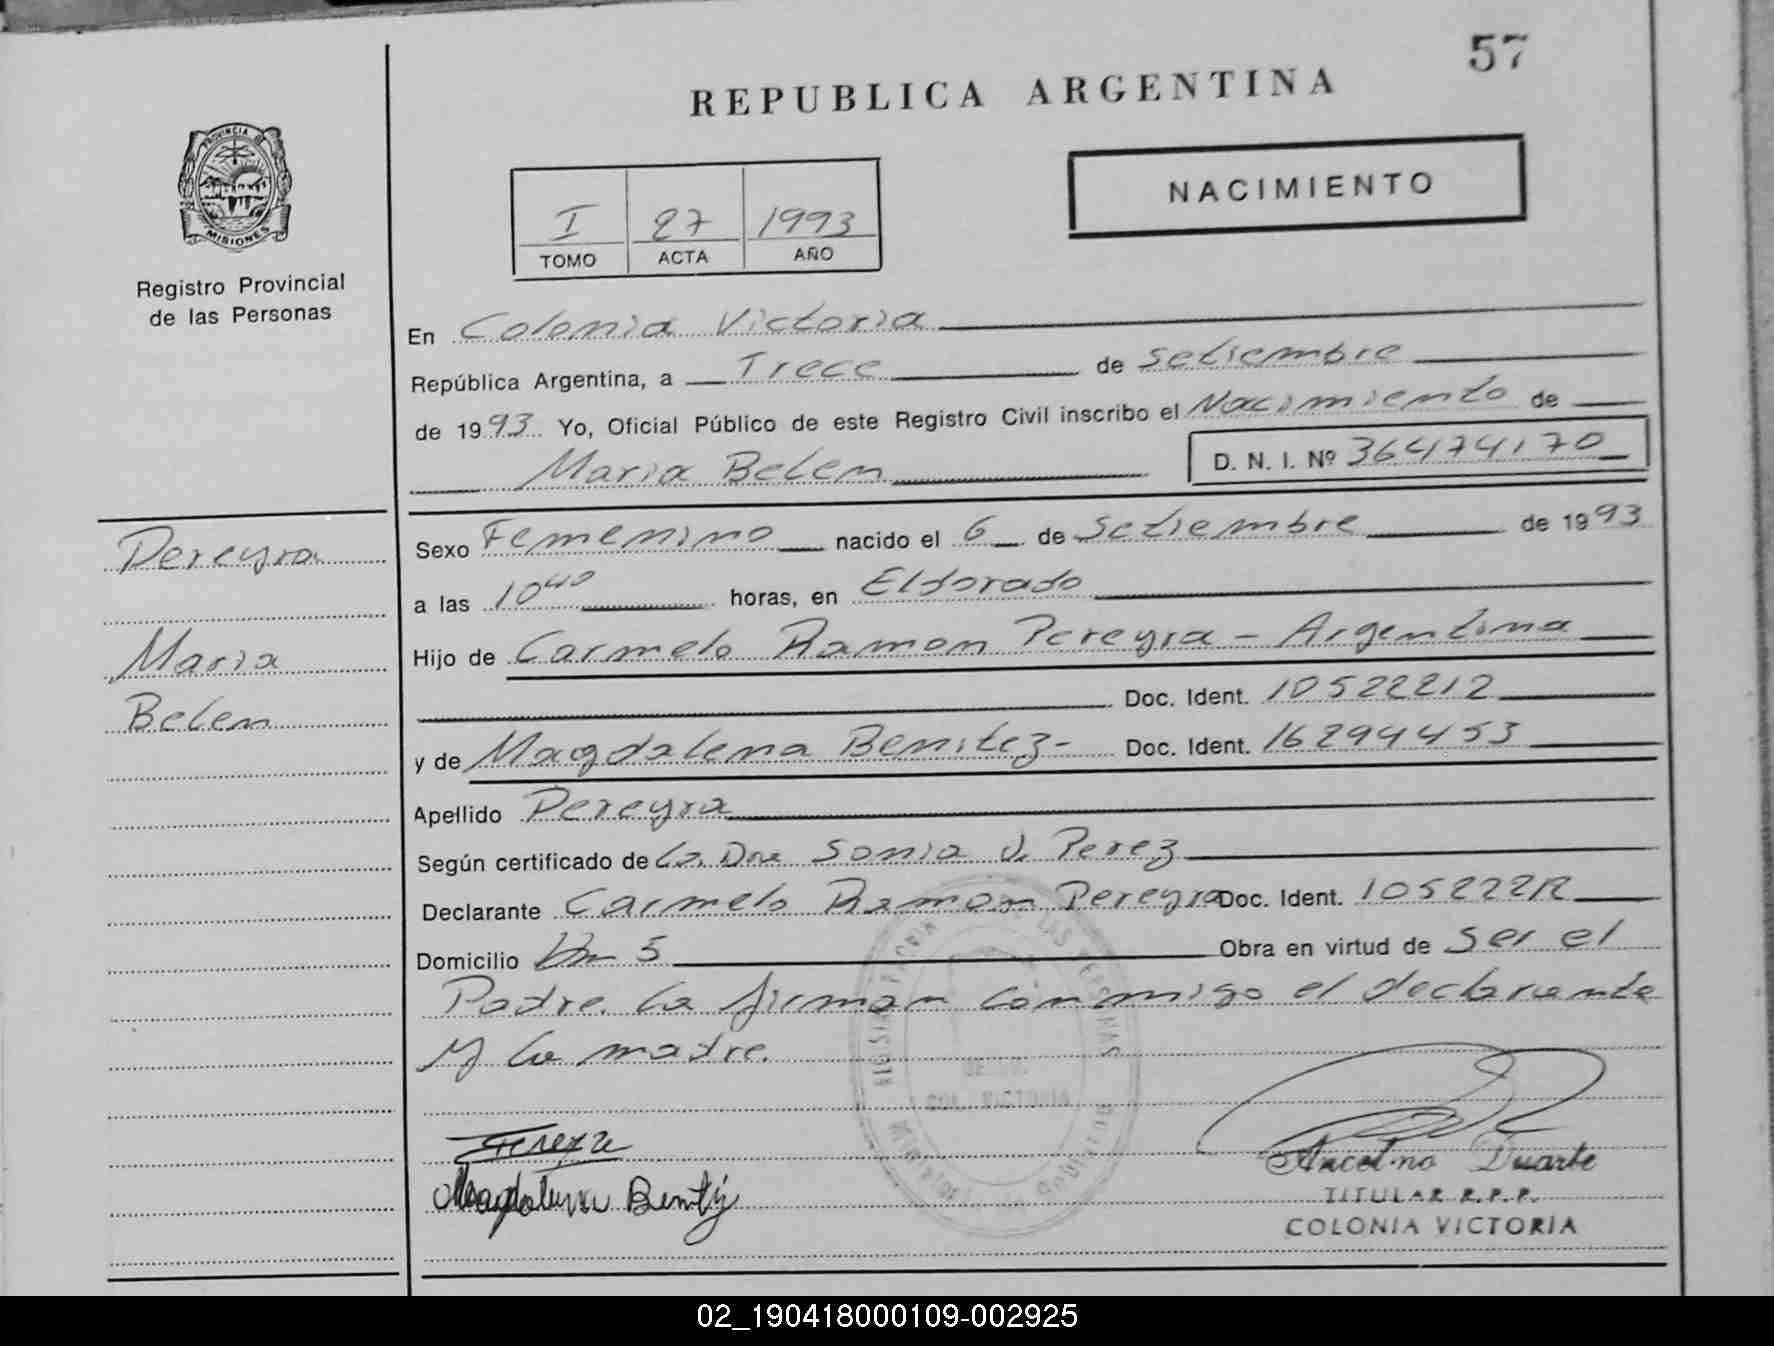 57
REPUBLICA ARGENTINA
PROVINCIA DE
MISIONES
Registro Provincial
de las Personas
NACIMIENTO
I 27 1993
TOMO ACTA AÑO
En Colonia Victoria
República Argentina, a Trece de Setiembre
de 1993 Yo, Oficial Público de este Registro Civil inscribo el Nacimiento de
Maria Belem D. N. I. Nº 36474170
Pereyra
Maria
Belem
Sexo Femenino nacido el 6 de Setiembre de 1993
a las 10 40 horas, en Eldorado
Hijo de Carmelo Ramon Pereyra - Argentina
Doc. Ident. 10522212
y de Magdalena Benitez - Doc. Ident. 16294453
Apellido Pereyra
Según certificado de La Dra Sonia J. Perez
Declarante Carmelo Ramon Pereyra Doc. Ident. 10522212
Domicilio Km 5 Obra en virtud de Ser el
Padre. La firman conmigo el declarante
y la madre.
DE LAS PERSONAS
COL. VICTORIA
Pereyra
Magdalena Benitez
Ancelmo Duarte
TITULAR R.P.P.
COLONIA VICTORIA
02_190418000109-002925